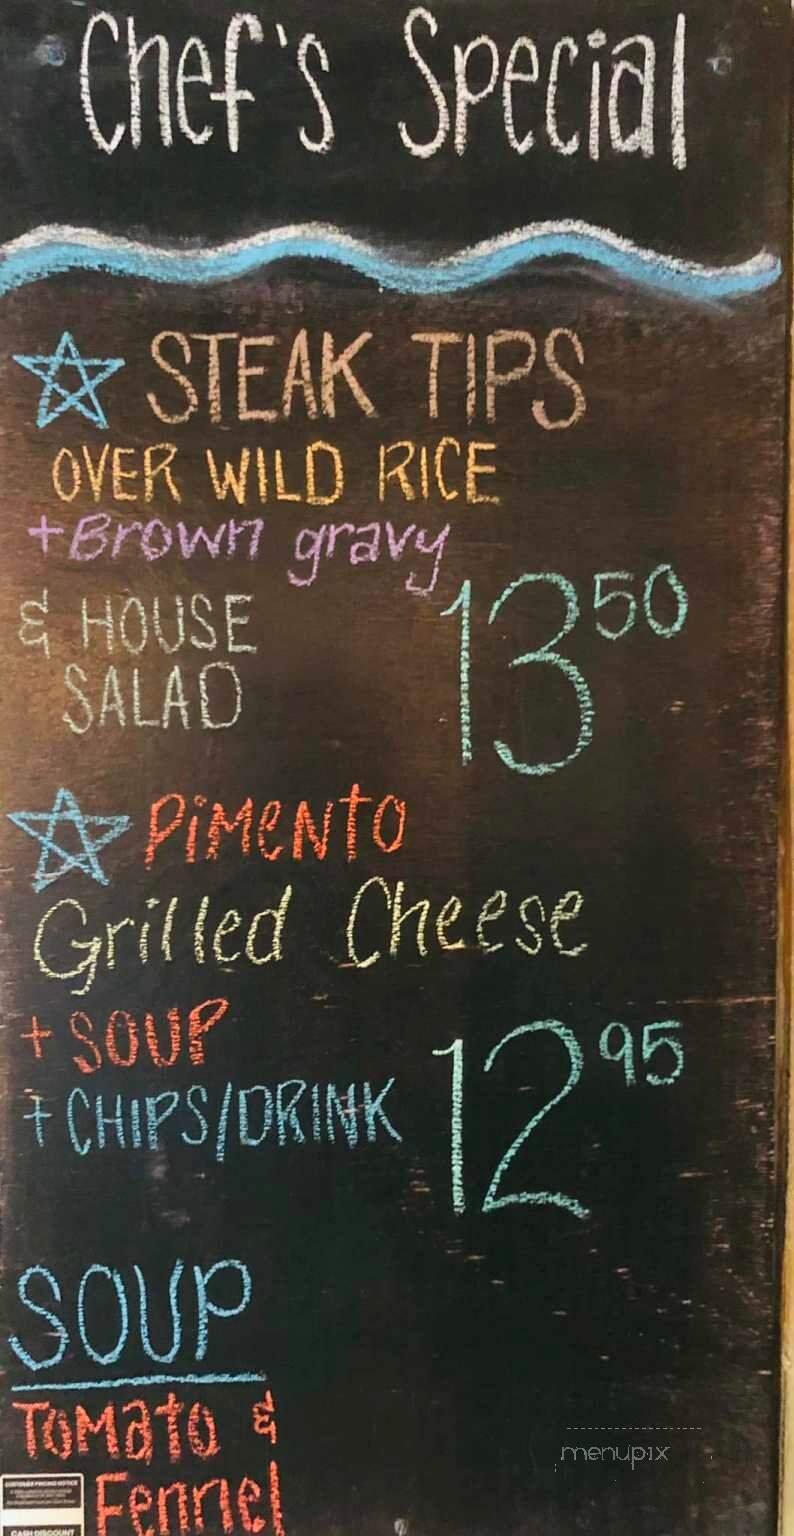 Chef's Special
STEAK TIPS
OVER WILD RICE
+ Brown gravy
& HOUSE
SALAD
13 50
PiMeNto
Grilled Cheese
+ SOUP
+ CHIPS/DRINK
12 95
SOUP
TOMato &
Fennel
menupix
CUSTOMER PRICING NOTICE
CASH DISCOUNT